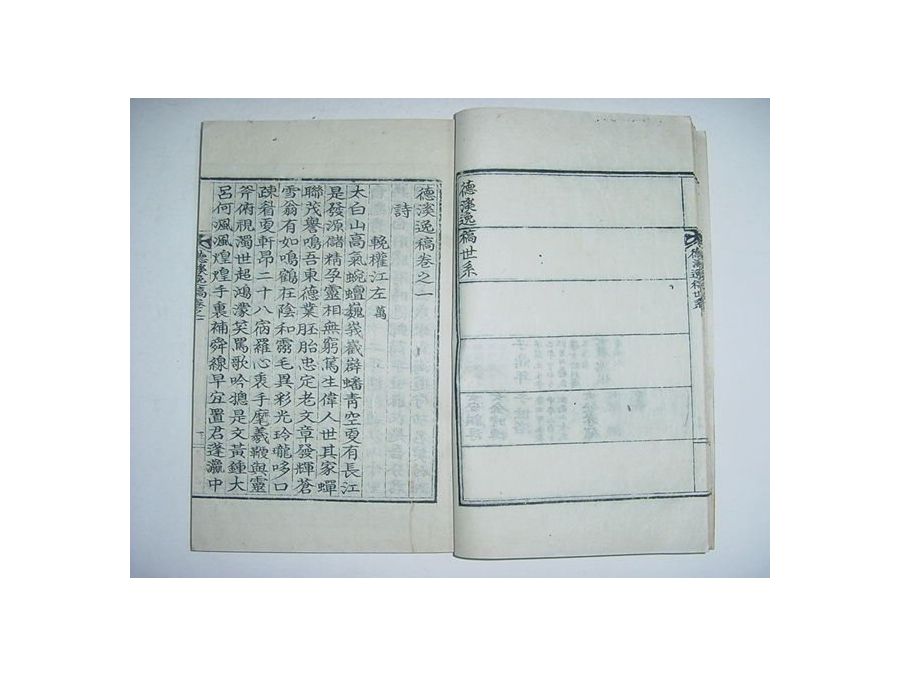 德溪逸稿世系
德溪逸稿世系
德溪逸稿卷之一
詩
輓權江左 萬
太白山高氣蜿蟺巍峩巀嶭蟠靑空更有長江
是發源儲精孕靈相無窮萬生偉人世其家蟬
聯茂譽鳴吾東德業胚胎忠定老文章發輝蒼
雪翁有如鳴鶴在陰和翎毛異彩光玲瓏哆口
疎眉更軒昂二十八宿羅心衷手麾羲鞭與靈
斧俯視濁世超鴻濛笑罵歌吟摠是文黃鍾大
呂何渢渢煌煌手裏補舜線早宜置君蓬瀛中
德溪逸稿卷之一